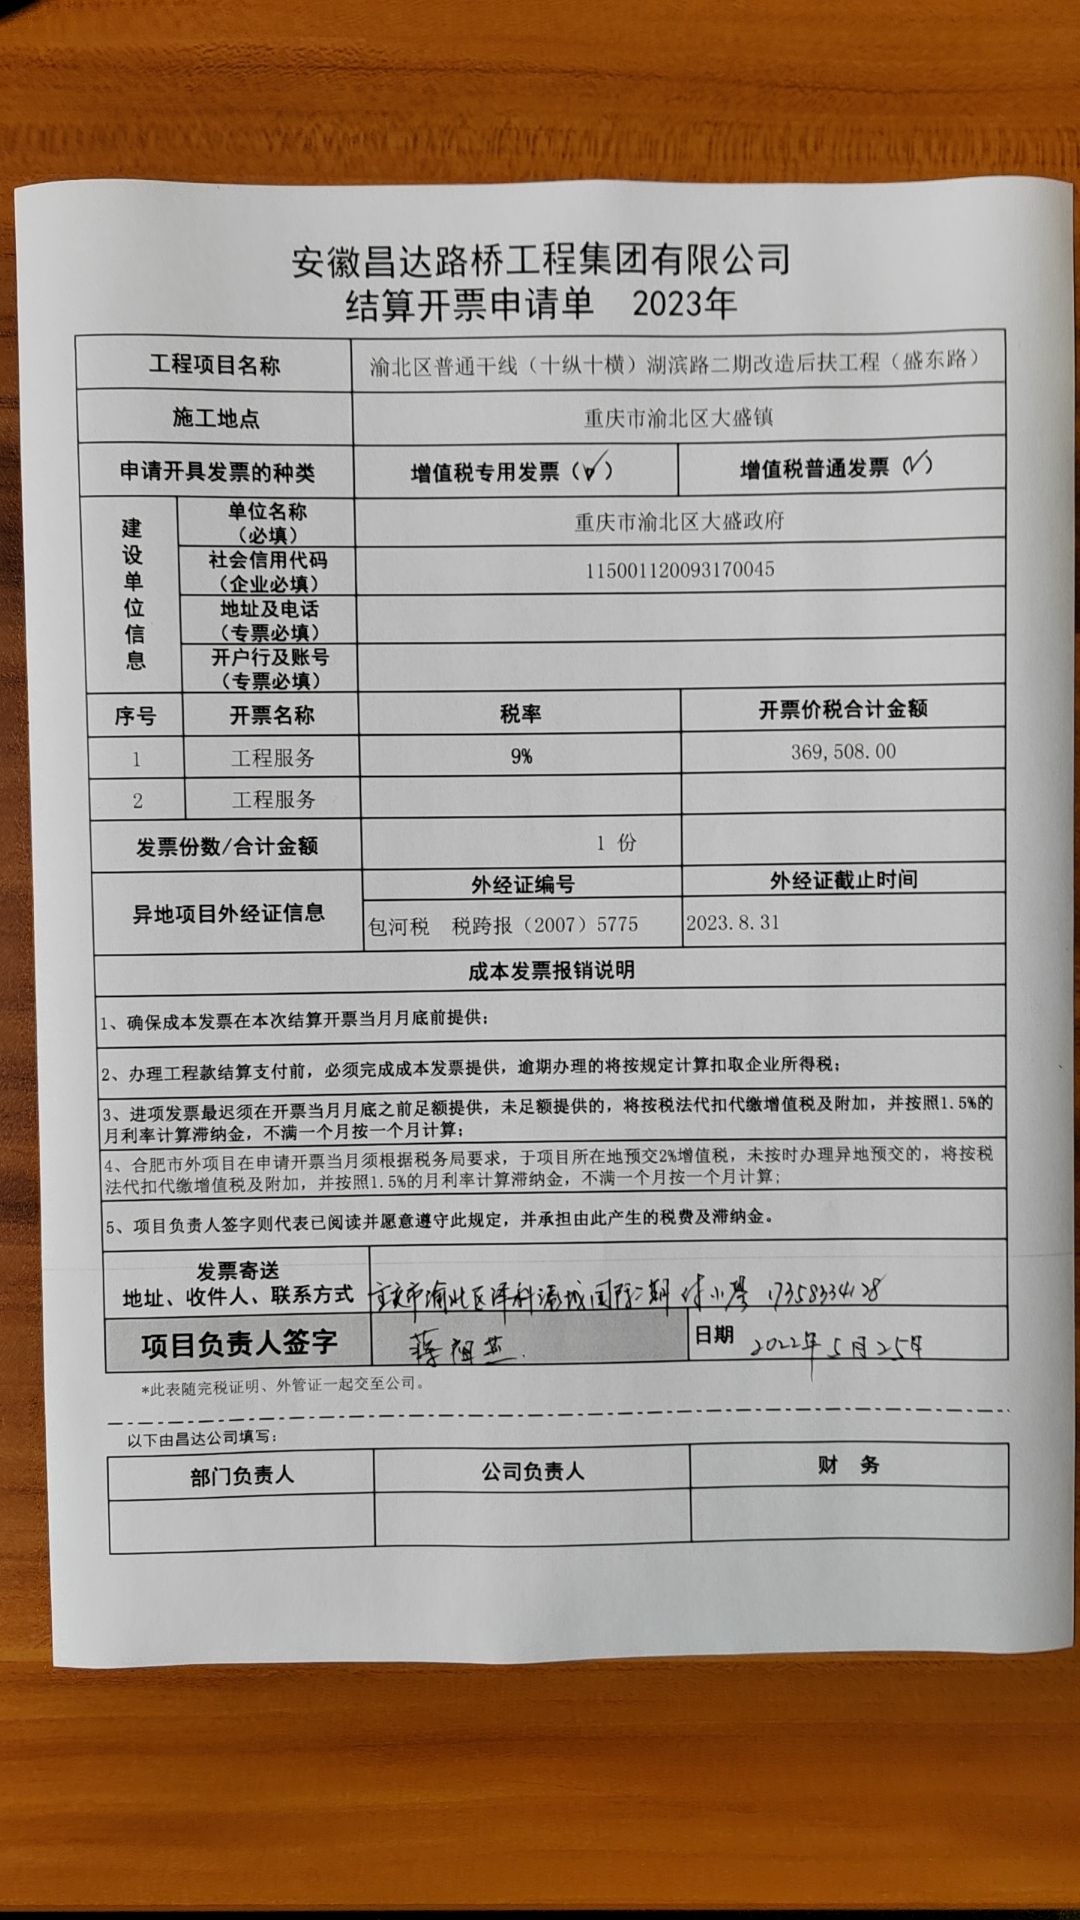 安徽昌达路桥工程集团有限公司
结算开票申请单 2023年
工程项目名称 渝北区普通干线（十纵十横）湖滨路二期改造后扶工程（盛东路）
施工地点 重庆市渝北区大盛镇
申请开具发票的种类 增值税专用发票（✓） 增值税普通发票（✓）
建设单位信息
单位名称
（必填）
重庆市渝北区大盛政府
社会信用代码
（企业必填）
115001120093170045
地址及电话
（专票必填）
开户行及账号
（专票必填）
序号 开票名称 税率 开票价税合计金额
1 工程服务 9% 369,508.00
2 工程服务
发票份数/合计金额 1 份
异地项目外经证信息
外经证编号 外经证截止时间
包河税 税跨报（2007）5775 2023.8.31
成本发票报销说明
1、确保成本发票在本次结算开票当月月底前提供；
2、办理工程款结算支付前，必须完成成本发票提供，逾期办理的将按规定计算扣取企业所得税；
3、进项发票最迟须在开票当月月底之前足额提供，未足额提供的，将按税法代扣代缴增值税及附加，并按照1.5%的
月利率计算滞纳金，不满一个月按一个月计算；
4、合肥市外项目在申请开票当月须根据税务局要求，于项目所在地预交2%增值税，未按时办理异地预交的，将按税
法代扣代缴增值税及附加，并按照1.5%的月利率计算滞纳金，不满一个月按一个月计算；
5、项目负责人签字则代表已阅读并愿意遵守此规定，并承担由此产生的税费及滞纳金。
发票寄送
地址、收件人、联系方式
重庆市渝北区泽科港城国际二期 小琴 17358334128
项目负责人签字 蒋祖 日期 2022年5月25号
*此表随完税证明、外管证一起交至公司。
以下由昌达公司填写：
部门负责人 公司负责人 财 务